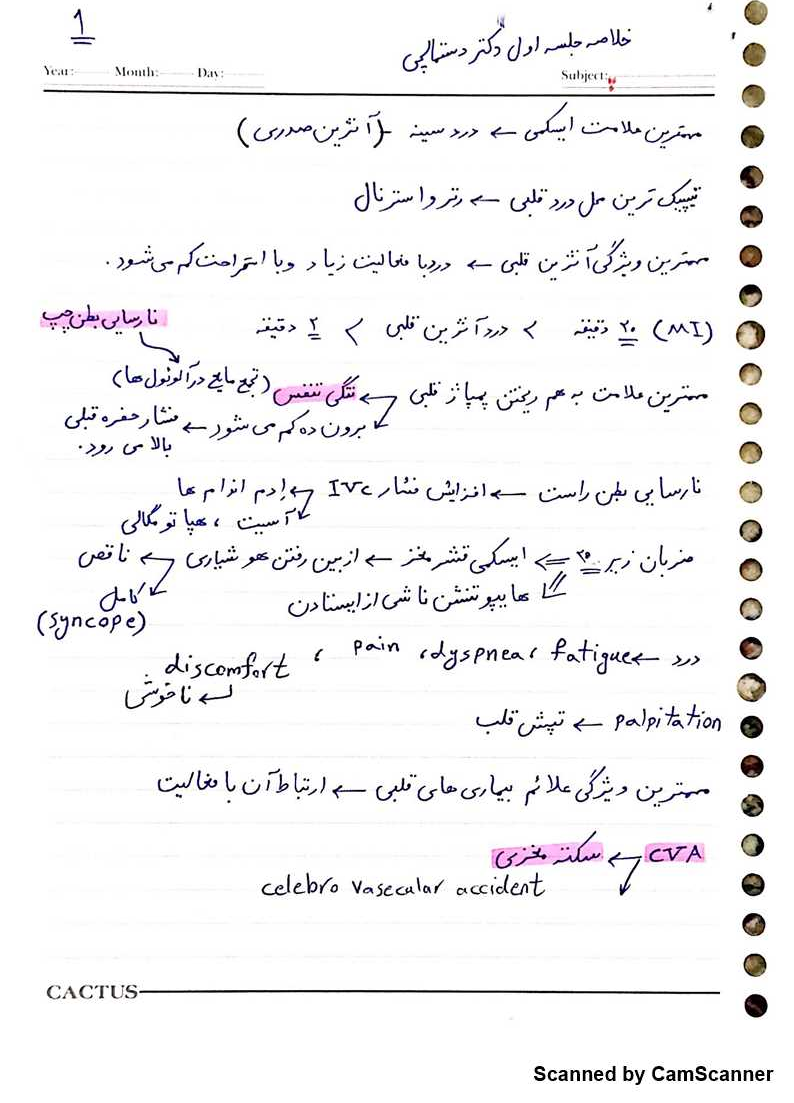 1
خلاصه جلسه اول دکتر دستمالچی
Year: Month: Day: Subject:
مهمترین علامت ایسکمی ← درد سینه (آنژین صدری)
تیپیک ترین محل درد قلبی ← رترواسترنال
مهمترین ویژگی آنژین قلبی ← درد با فعالیت زیاد و با استراحت کم می شود.
(MI) ۲۰ دقیقه > درد آنژین قلبی > ۲ دقیقه
نارسایی بطن چپ
مهمترین علامت به هم ریختن پمپاژ قلبی ← تنگی تنفس (تجمع مایع در آلوئول ها)
برون ده کم می شود ← فشار حفره قبلی بالا می رود.
نارسایی بطن راست ← افزایش فشار IVC ← اِدم اندام ها
آسیت ، هپاتومگالی
ضربان زیر ۳۵ ⇐ ایسکمی قشر مغز ← از بین رفتن هوشیاری ← ناقص
کامل (syncope)
هایپوتنشن ناشی از ایستادن
درد ← fatigue ، dyspnea ، pain ، discomfort
ناخوشی
palpitation ← تپش قلب
مهمترین ویژگی علائم بیماری های قلبی ← ارتباط آن با فعالیت
CVA ← سکته مغزی
celebro vasecular accident
CACTUS
Scanned by CamScanner